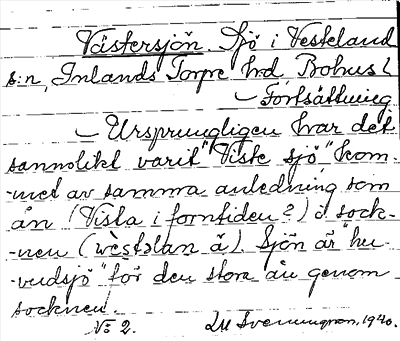 Västersjön. Sjö i Vesteland
s:n, Inlands Torpe hrd, Bohusl.
— Fortsättning
— Ursprungligen har det
sannolikt varit "Viste sjö", kom-
-met av samma anledning som
ån (Vista i forntiden?) i sock-
-nen (wèstəlan å). Sjön är "hu-
-vudsjö" för den stora ån genom
socknen.
No 2. Svenungson. 1940.